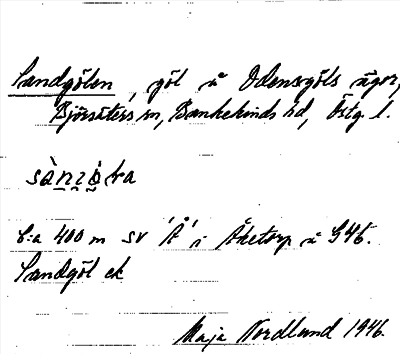 Sandgölen, göl å Odensgöls ägor,
Björsäters sn, Bankekinds hd, Östg. l.
C:a 400 m SV 'Å' i Åketorp å G46.
Sandgöl ek
Maja Nordlund 1946.